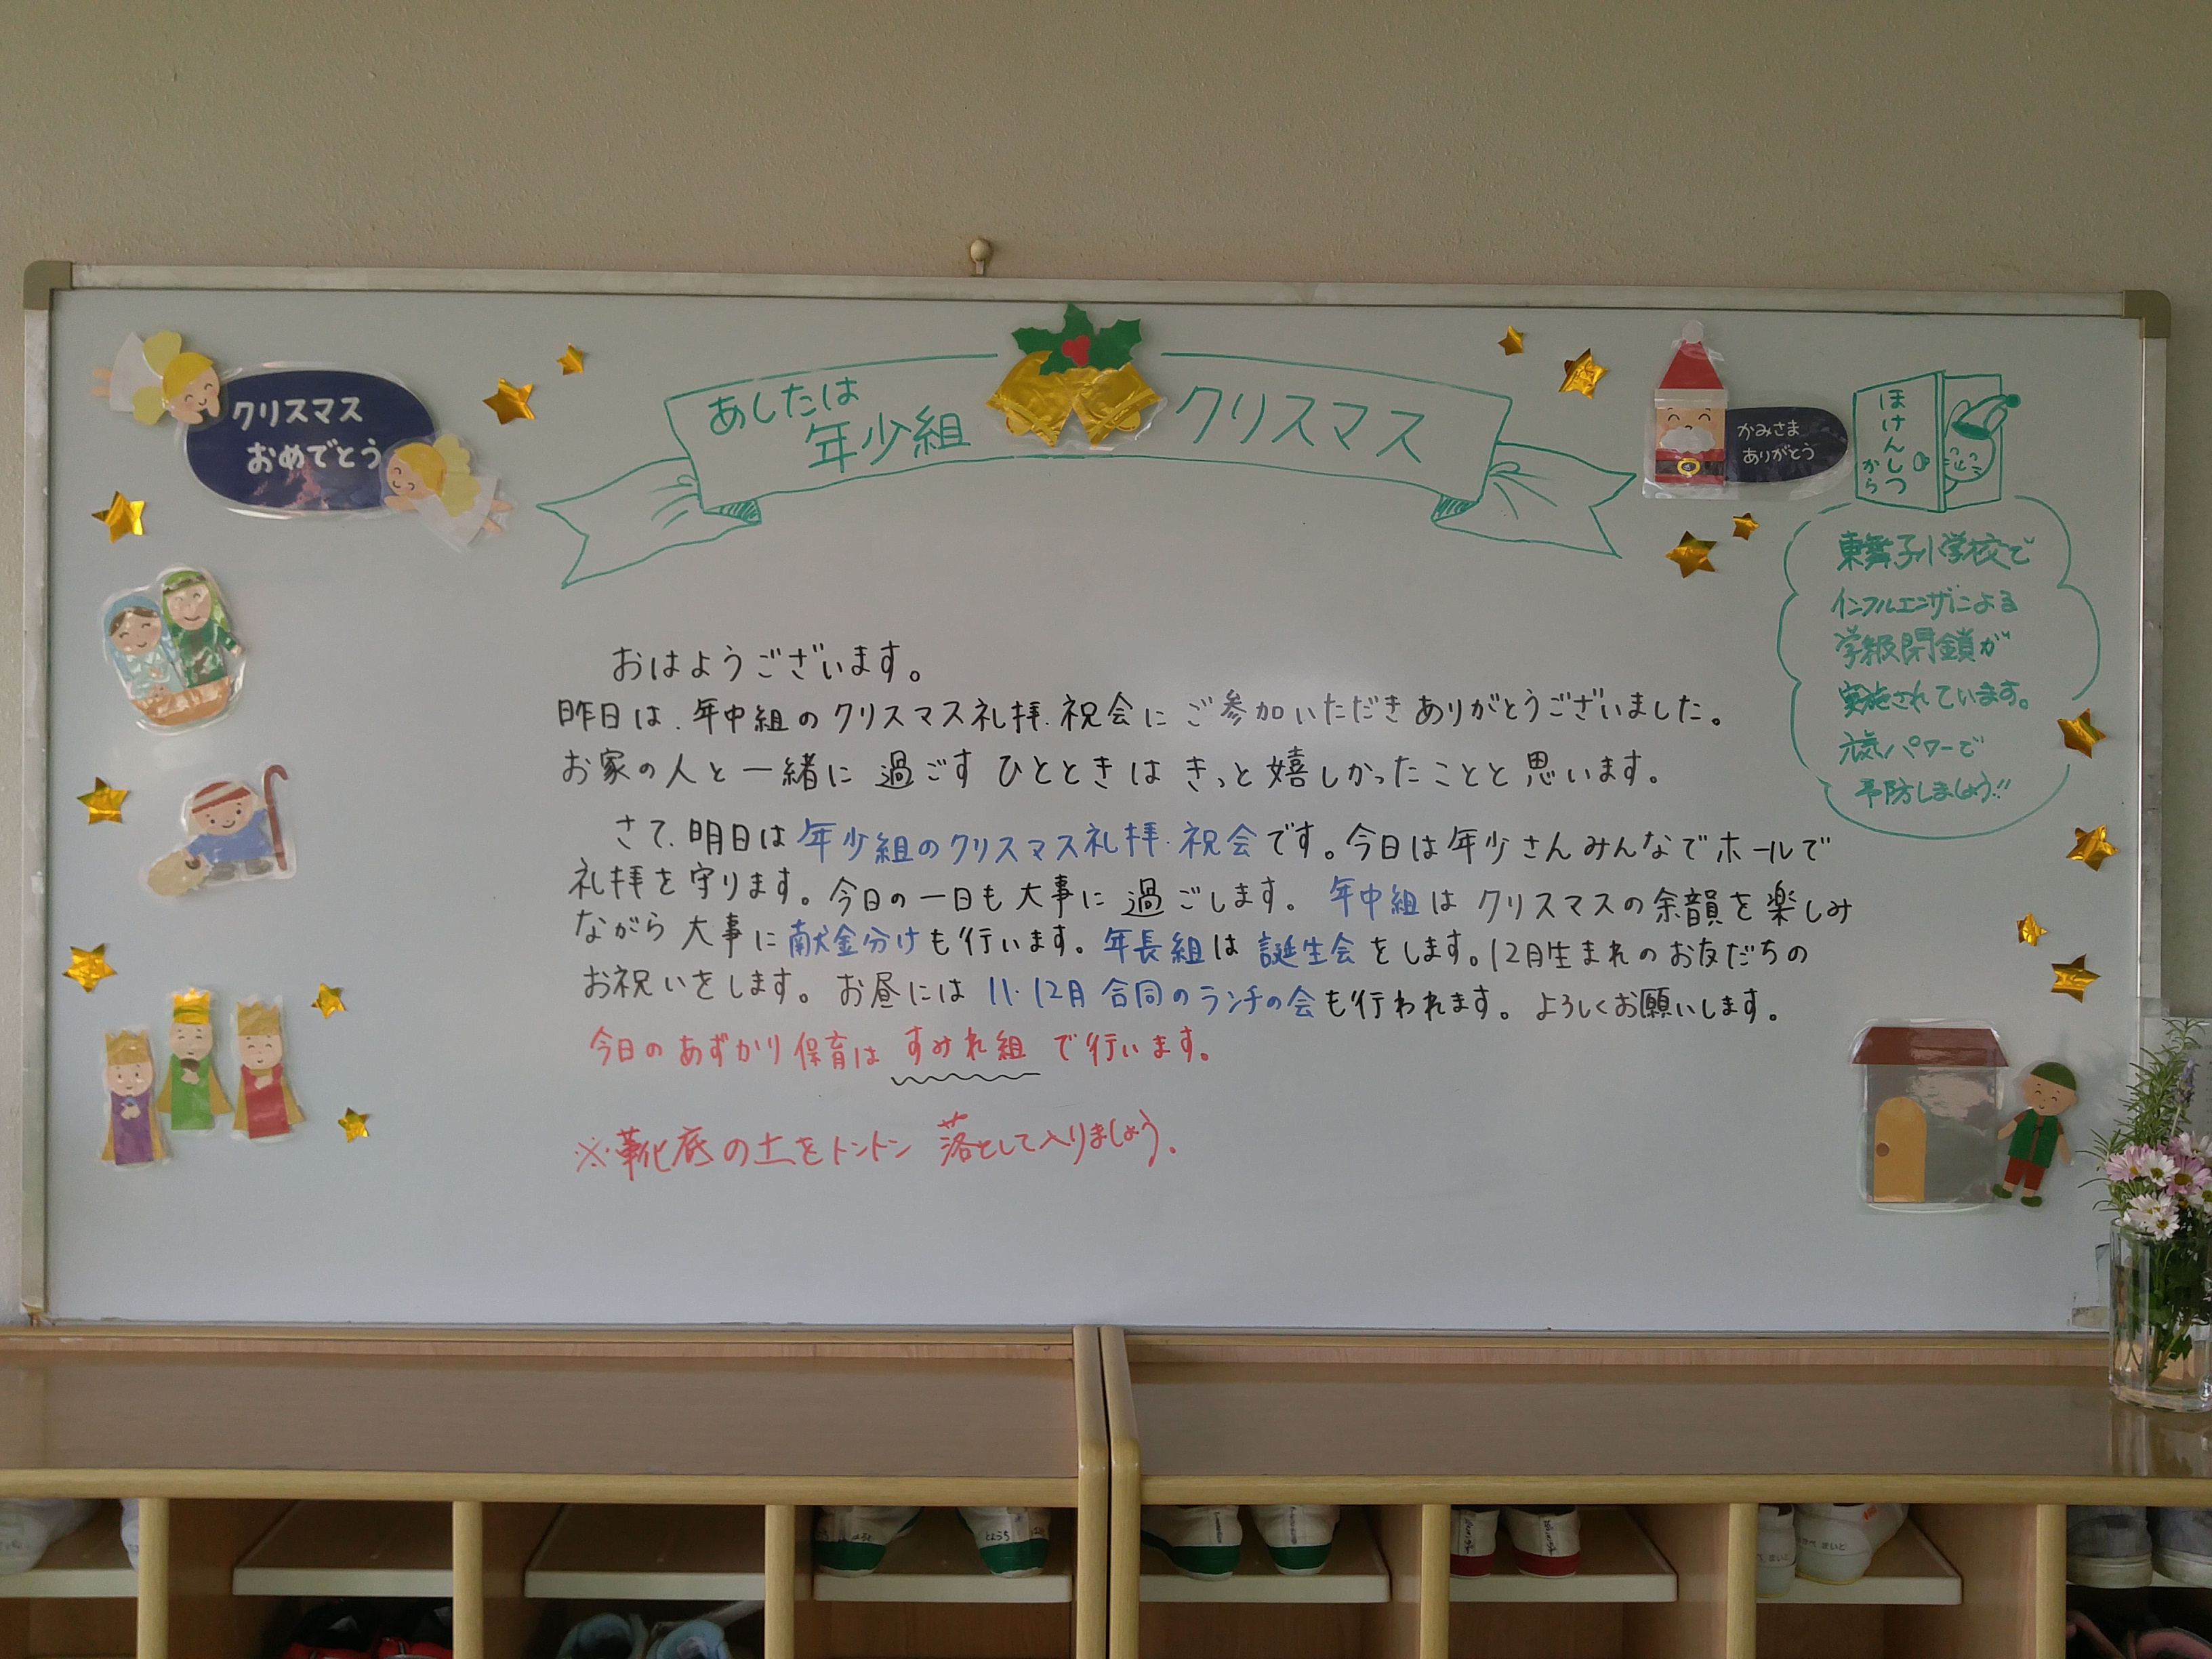 クリスマス
おめでとう
あしたは
年少組
クリスマス
かみさま
ありがとう
ほけんしつ
から
東舞子小学校で
インフルエンザによる
学級閉鎖が
実施されています。
元気パワーで
予防しましょう!!
おはようございます。
昨日は、年中組のクリスマス礼拝・祝会にご参加いただきありがとうございました。
お家の人と一緒に過ごすひとときはきっと嬉しかったことと思います。
さて、明日は年少組のクリスマス礼拝・祝会です。今日は年少さんみんなでホールで
礼拝を守ります。今日の一日も大事に過ごします。年中組はクリスマスの余韻を楽しみ
ながら大事に献金分けも行います。年長組は誕生会をします。12月生まれのお友だちの
お祝いをします。お昼には11・12月合同のランチの会も行われます。よろしくお願いします。
今日のあずかり保育はすみれ組で行います。
※靴底の土をトントン落として入りましょう。